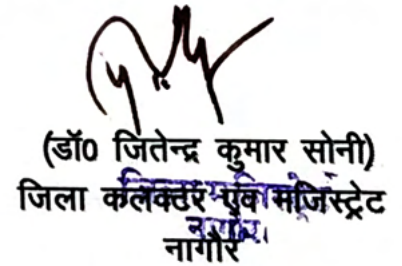 (डॉ0 जितेन्द्र कुमार सोनी)
जिला कलक्टर एवं मजिस्ट्रेट
नागौर